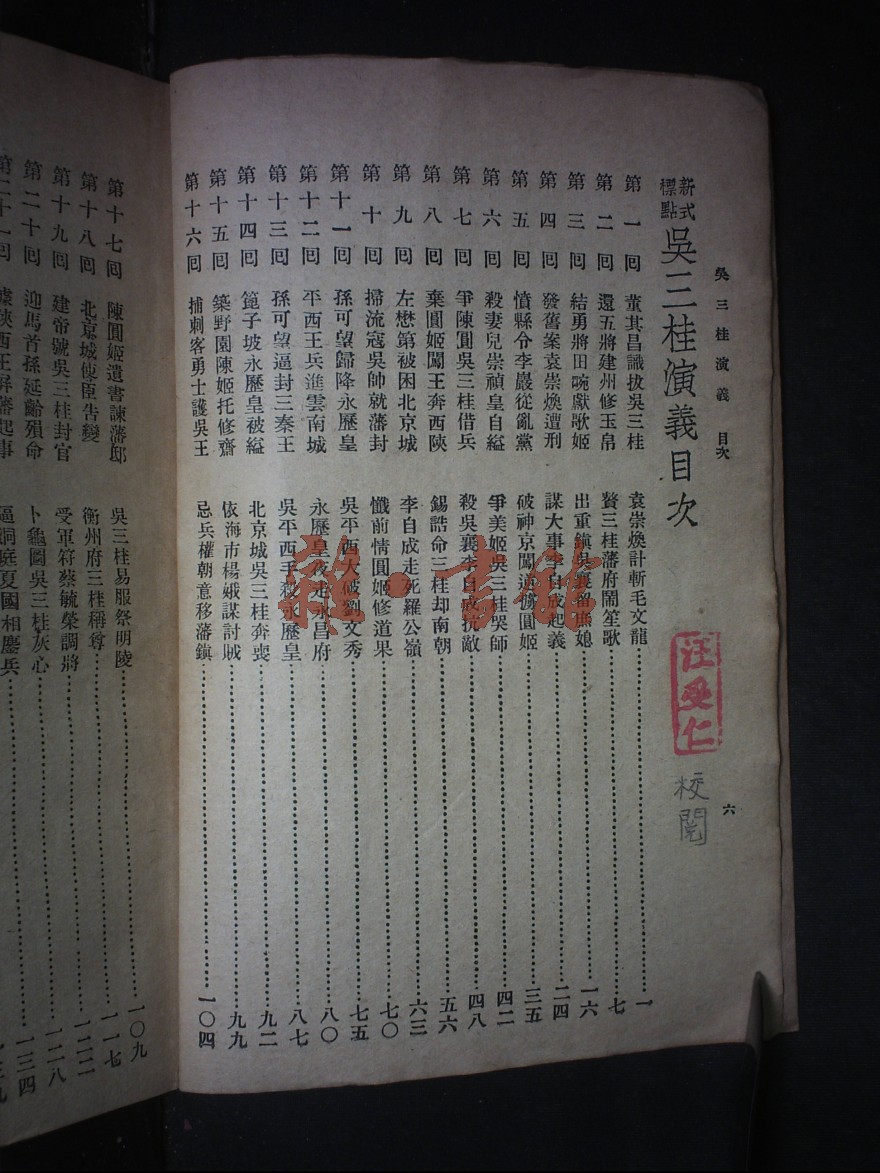 吳三桂演義　目次
六
新式標點 吳三桂演義目次
汪受仁
校閱
第一回　董其昌識拔吳三桂　袁崇煥計斬毛文龍……一
第二回　還五將建州修玉帛　贅三桂藩府鬧笙歌……七
第三回　結勇將田畹獻歌姬　出重鎮吳襄留庶媳……一六
第四回　發舊案袁崇煥遭刑　謀大事李自成起義……二四
第五回　憤縣令李巖從亂黨　破神京闖逆擄圓姬……三五
第六回　殺妻兒崇禎皇自縊　爭美姬吳三桂吳師……四二
第七回　爭陳圓吳三桂借兵　殺吳襄李自成抗敵……四八
第八回　棄圓姬闖王奔西陝　錫誥命三桂却南朝……五六
第九回　左懋第被困北京城　李自成走死羅公嶺……六三
第十回　掃流寇吳帥就藩封　懺前情圓姬修道果……七〇
第十一回　孫可望歸降永歷皇　吳平西大破劉文秀……七五
第十二回　平西王兵進雲南城　永歷皇夜走永昌府……八〇
第十三回　孫可望逼封三秦王　吳平西手殺永歷皇……八七
第十四回　箆子坡永歷皇被縊　北京城吳三桂奔喪……九二
第十五回　築野園陳姬托修齋　依海市楊娥謀討賊……九九
第十六回　捕刺客勇士護吳王　忌兵權朝意移藩鎮……一〇四
第十七回　陳圓姬遺書諫藩邸　吳三桂易服祭明陵……一〇九
第十八回　北京城使臣告變　衡州府三桂稱尊……一一七
第十九回　建帝號吳三桂封官　受軍符蔡毓榮調將……一二二
第二十回　迎馬首孫延齡殞命　卜龜圖吳三桂灰心……一二八
第二十一回　陝西王屏藩起事　逼洞庭夏國相鏖兵……一三四
雜·書館